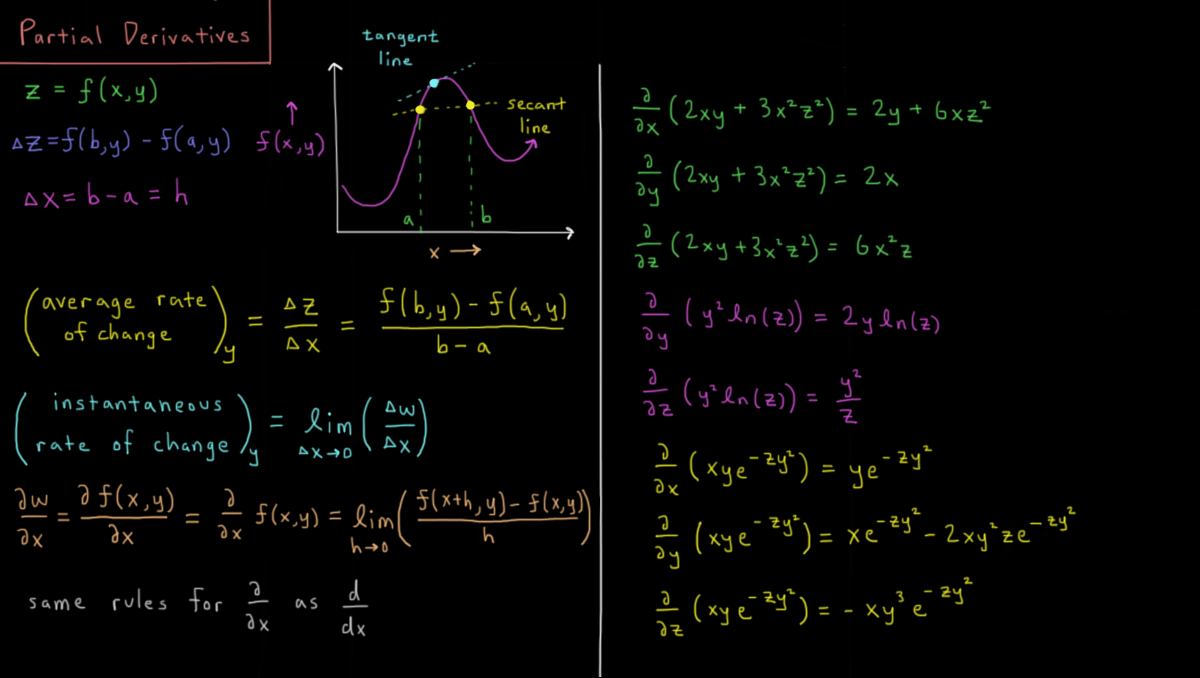 Partial Derivatives
z = f(x,y)
Δz = f(b,y) - f(a,y)
Δx = b - a = h
f(x,y)
tangent
line
secant
line
a
b
x →
(average rate of change)_y = Δz/Δx = (f(b,y) - f(a,y))/(b - a)
(instantaneous rate of change)_y = lim_{Δx→0} (Δw/Δx)
∂w/∂x = ∂f(x,y)/∂x = ∂/∂x f(x,y) = lim_{h→0} ((f(x+h,y) - f(x,y))/h)
same rules for ∂/∂x as d/dx
∂/∂x (2xy + 3x²z²) = 2y + 6xz²
∂/∂y (2xy + 3x²z²) = 2x
∂/∂z (2xy + 3x²z²) = 6x²z
∂/∂y (y² ln(z)) = 2y ln(z)
∂/∂z (y² ln(z)) = y²/z
∂/∂x (xye^{-zy²}) = ye^{-zy²}
∂/∂y (xye^{-zy²}) = xe^{-zy²} - 2xy²ze^{-zy²}
∂/∂z (xye^{-zy²}) = -xy³e^{-zy²}